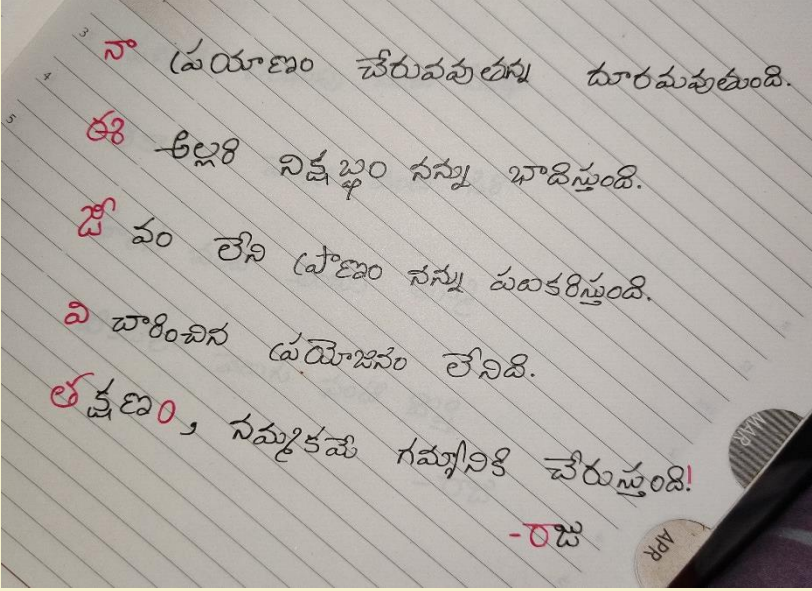 నా ప్రయాణం చేరువవుతన్న దూరమవుతుంది.
ఈ అల్లరి నిష్షబ్ధం నన్ను భాదిస్తుంది.
జీవం లేని ప్రాణం నన్ను పలకరిస్తుంది.
విచారించిన ప్రయోజనం లేనిది.
తక్షణం, నమ్మకమే గమ్యానికి చేరుస్తుంది!
-రాజు
3
4
5
MAR
APR